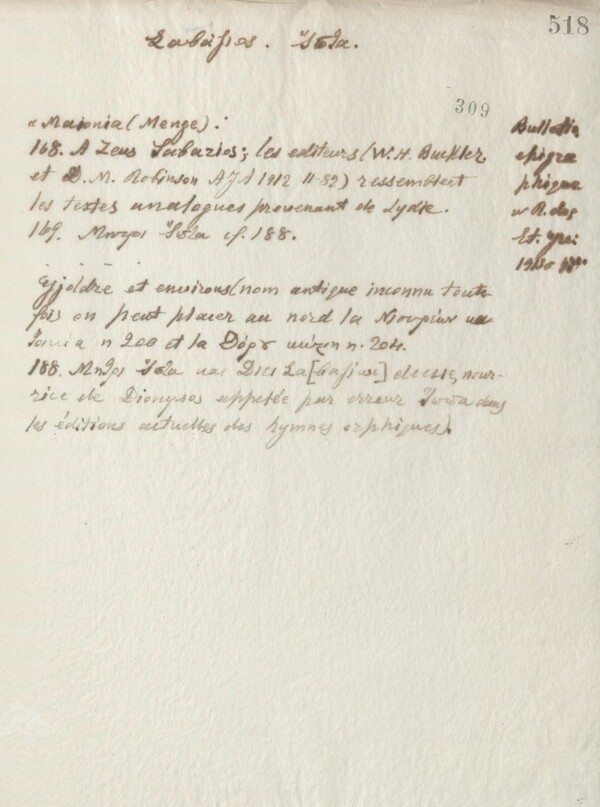 518
Σαβάζιος. Ἵπτα.
309
« Maionia (Menge) :
168. A Zeus Sabazios; les editeurs (W. H. Buckler
et D. M. Robinson AJA 1912 11-82) ressemblent
les textes analogues provenant de Lydie.
169. Μητρὶ Ἵπτα cf. 188.
Gjöldre et environs (nom antique inconnu toute
fois on peut placer au nord la
n 200 et la n. 204.
188. Μητρὶ Ἵπτα και Διεὶ Σα[βαζίωι] deesse, nour-
rice de Dionysos appelée par erreur dans
les éditions actuelles des hymnes orphiques).
Bulletin
epigra
phique
R. des
Et. grec